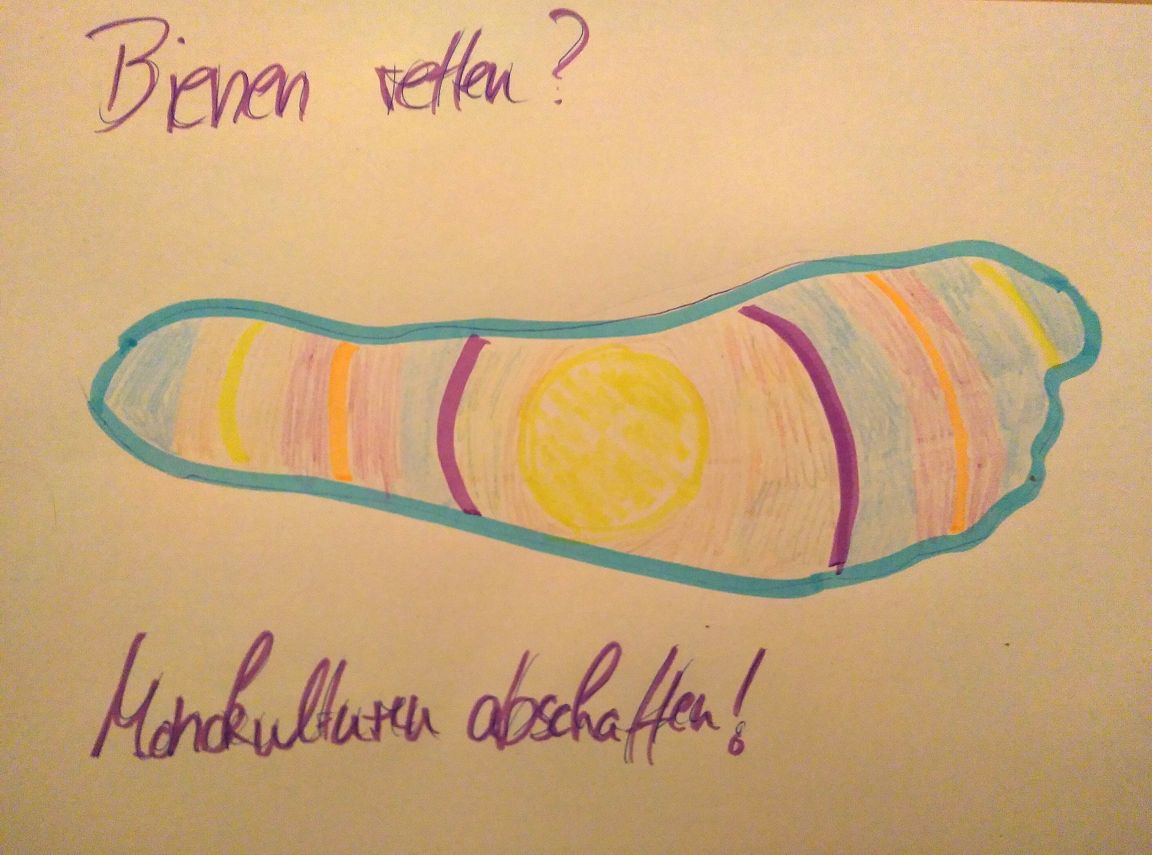 Bienen retten?
Monokulturen abschaffen!